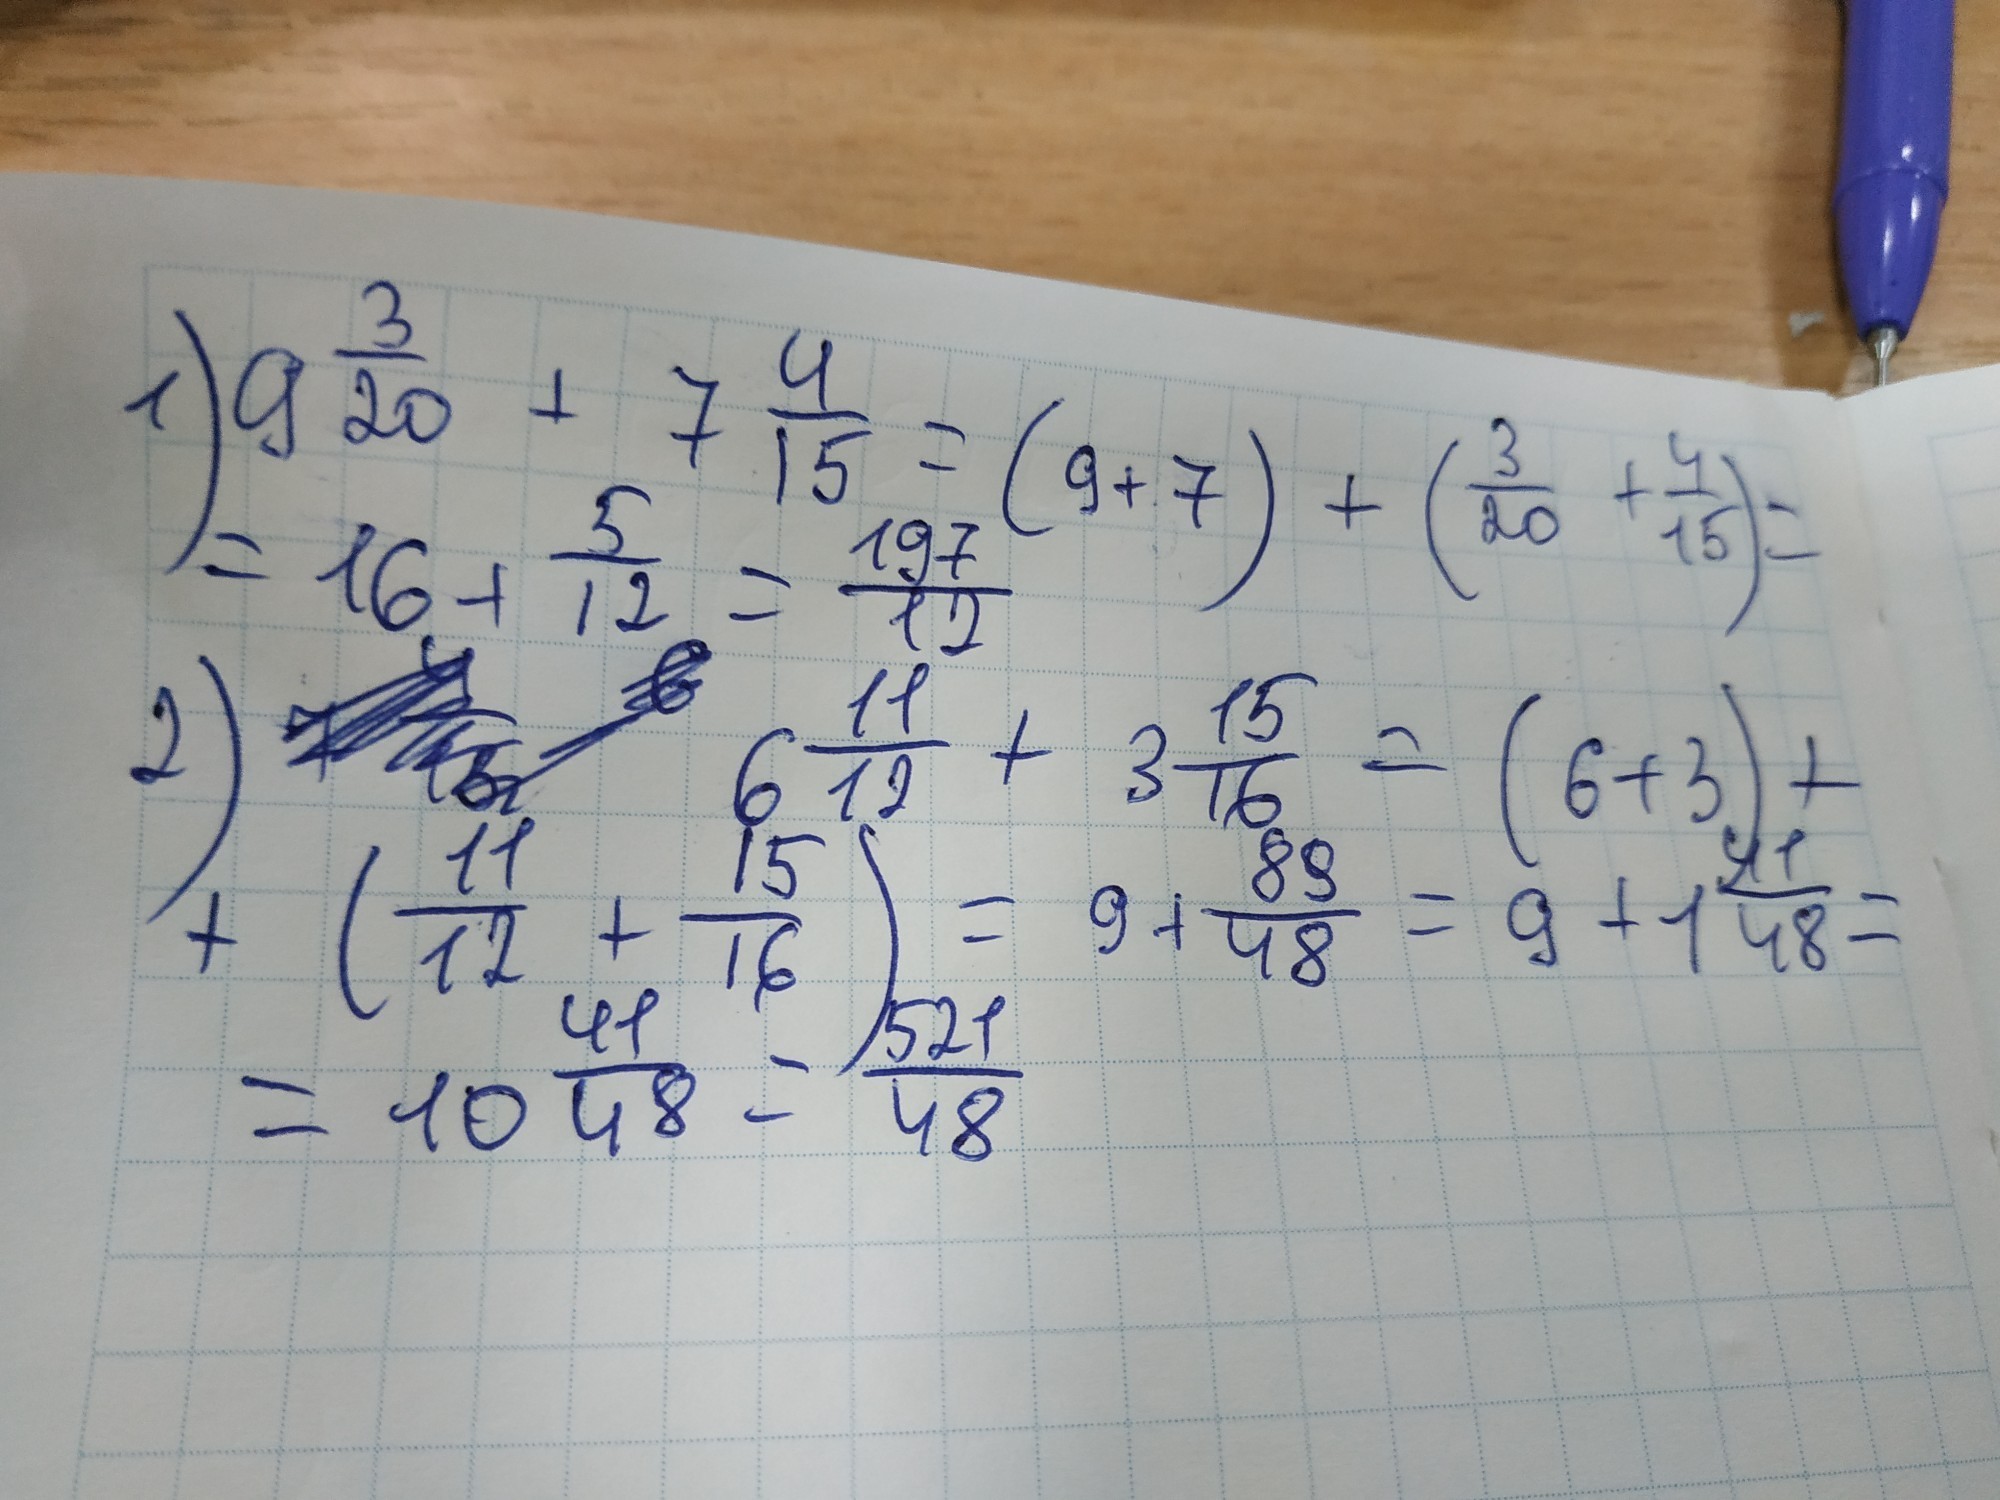 1) 9 3/20 + 7 4/15 = (9+7) + (3/20 + 4/15) =
= 16 + 5/12 = 197/12
2) 6 11/12 + 3 15/16 = (6+3) +
+ (11/12 + 15/16) = 9 + 89/48 = 9 + 1 41/48 =
= 10 41/48 = 521/48